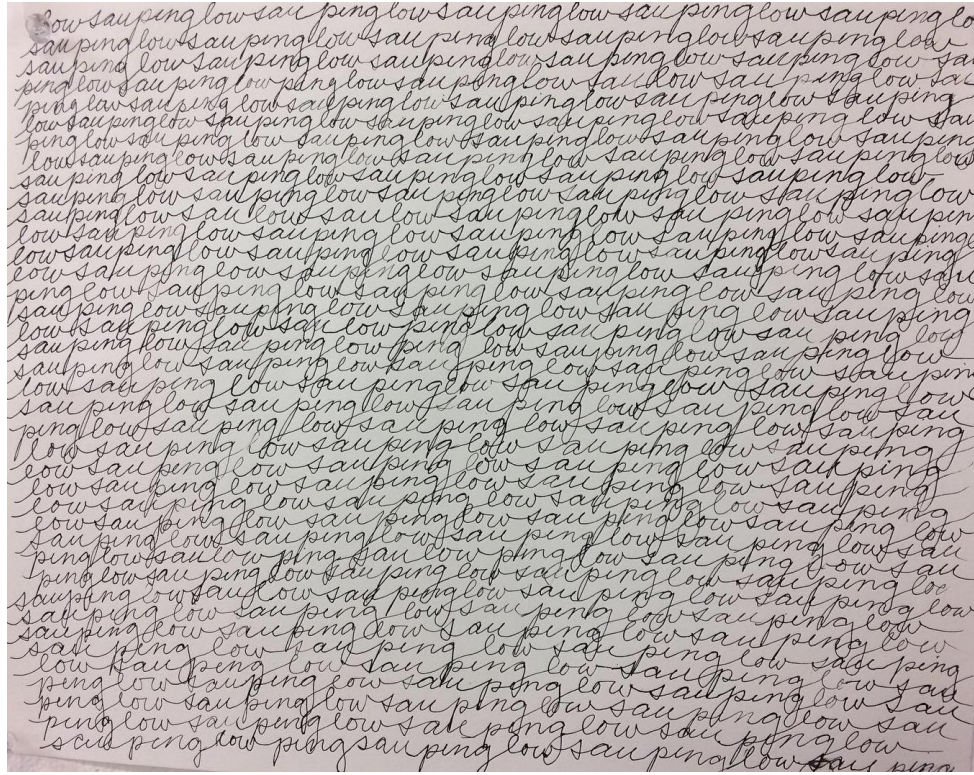 lowsaupinglowsaupinglowsaupinglowsaupinglowsaupinglo
saupinglowsaupinglowsaupinglowsaupinglowsaupinglow
saupinglowsaupinglowsaupinglowsaupinglowsaupinglowsau
pinglowsaupinglowpinglowsaupinglowsaulowsaupinglowsau
pinglowsaupinglowsaupinglowsaupinglowsaupinglowsauping
lowsaupinglowsaupinglowsaupinglowsaupinglowsaupinglowsau
pinglowsaupinglowsaupinglowsaupinglowsaupinglowsauping
lowsaupinglowsaupinglowsaupinglowsaupinglowsaupinglow
saupinglowsaupinglowsaupinglowsaupinglowsaupinglow
saupinglowsaupinglowsaupinglowsaupinglowsaupinglow
saupinglowsaulowsaulowsaupinglowsaupinglowsauping
lowsaupinglowsaupinglowsaupinglowsaupinglowsauping
lowsaupinglowsaupinglowsaupinglowsaupinglowsauping
lowsaupinglowsaupinglowsaupinglowsaupinglowsau
pinglowsaupinglowsaupinglowsaupinglowsaupinglow
saupinglowsaupinglowsaupinglowsaupinglowsauping
lowsaupinglowsaulowpinglowsaupinglowsaupinglow
saupinglowsaupinglowpinglowsaupinglowsaupinglow
saupinglowsaupinglowsaupinglowsaupinglowsauping
lowsaupinglowsaupinglowsaupinglowsaupinglow
saupinglowsaupinglowsaupinglowsaupinglowsau
pinglowsaupinglowsaupinglowsaupinglowsauping
lowsaupinglowsaupinglowsaupinglowsauping
lowsaupinglowsaupinglowsaupinglowsauping
lowsaupinglowsaupinglowsaupinglowsauping
lowsaupinglowsaupinglowsaupinglowsauping
lowsaupinglowsaupinglowsaupinglowsaupinglow
saupinglowsaupinglowsaupinglowsaupinglowsau
pinglowsaulowpingsaulowpinglowsaupinglowsau
pinglowsaupinglowsaupinglowsaupinglowsauping
saupinglowsaulowsaupinglowsaupinglowsaupinglow
saupinglowsaupinglowsaupinglowsaupinglow
saupinglowsaupinglowsaupinglowsaupinglow
saupinglowsaupinglowsaupinglowsaupinglow
lowsaupinglowsaupinglowsaupinglowsauping
pinglowsaupinglowsaupinglowsaupinglowsau
pinglowsaupinglowsaupinglowsaupinglowsau
pinglowsaupinglowsaupinglowsaupinglowsau
saupinglowpingsaupinglowsaupinglow
sauping